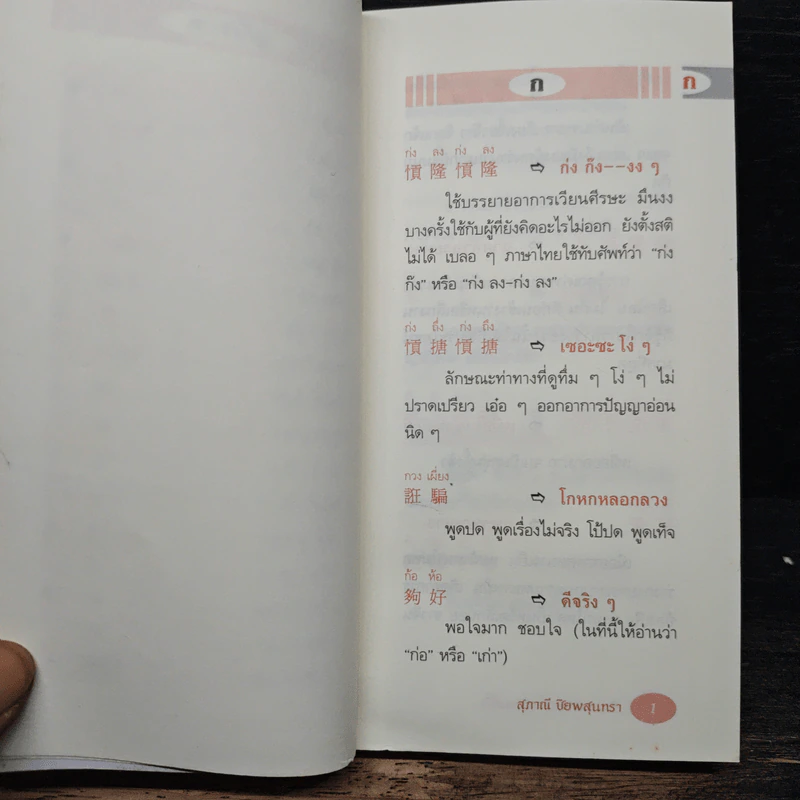 ก
ก
ก่ง ลง ก่ง ลง
慣 隆 慣 隆 ⇨ ก่ง ก๊ง--งง ๆ
ใช้บรรยายอาการเวียนศีรษะ มึนงง
บางครั้งใช้กับผู้ที่ยังคิดอะไรไม่ออก ยังตั้งสติ
ไม่ได้ เบลอ ๆ ภาษาไทยใช้ทับศัพท์ว่า "ก่ง
ก๊ง" หรือ "ก่ง ลง-ก่ง ลง"
ก่ง ถึ่ง ก่ง ถึ่ง
慣 搪 慣 搪 ⇨ เซอะซะ โง่ ๆ
ลักษณะท่าทางที่ดูทึ่ม ๆ โง่ ๆ ไม่
ปราดเปรียว เอ๋อ ๆ ออกอาการปัญญาอ่อน
นิด ๆ
กวง เผี่ยง
誑 騙 ⇨ โกหกหลอกลวง
พูดปด พูดเรื่องไม่จริง โป้ปด พูดเท็จ
ก้อ ห้อ
夠 好 ⇨ ดีจริง ๆ
พอใจมาก ชอบใจ (ในที่นี้ให้อ่านว่า
"ก่อ" หรือ "เก่า")
สุภาณี ปิยพสุนทรา 1